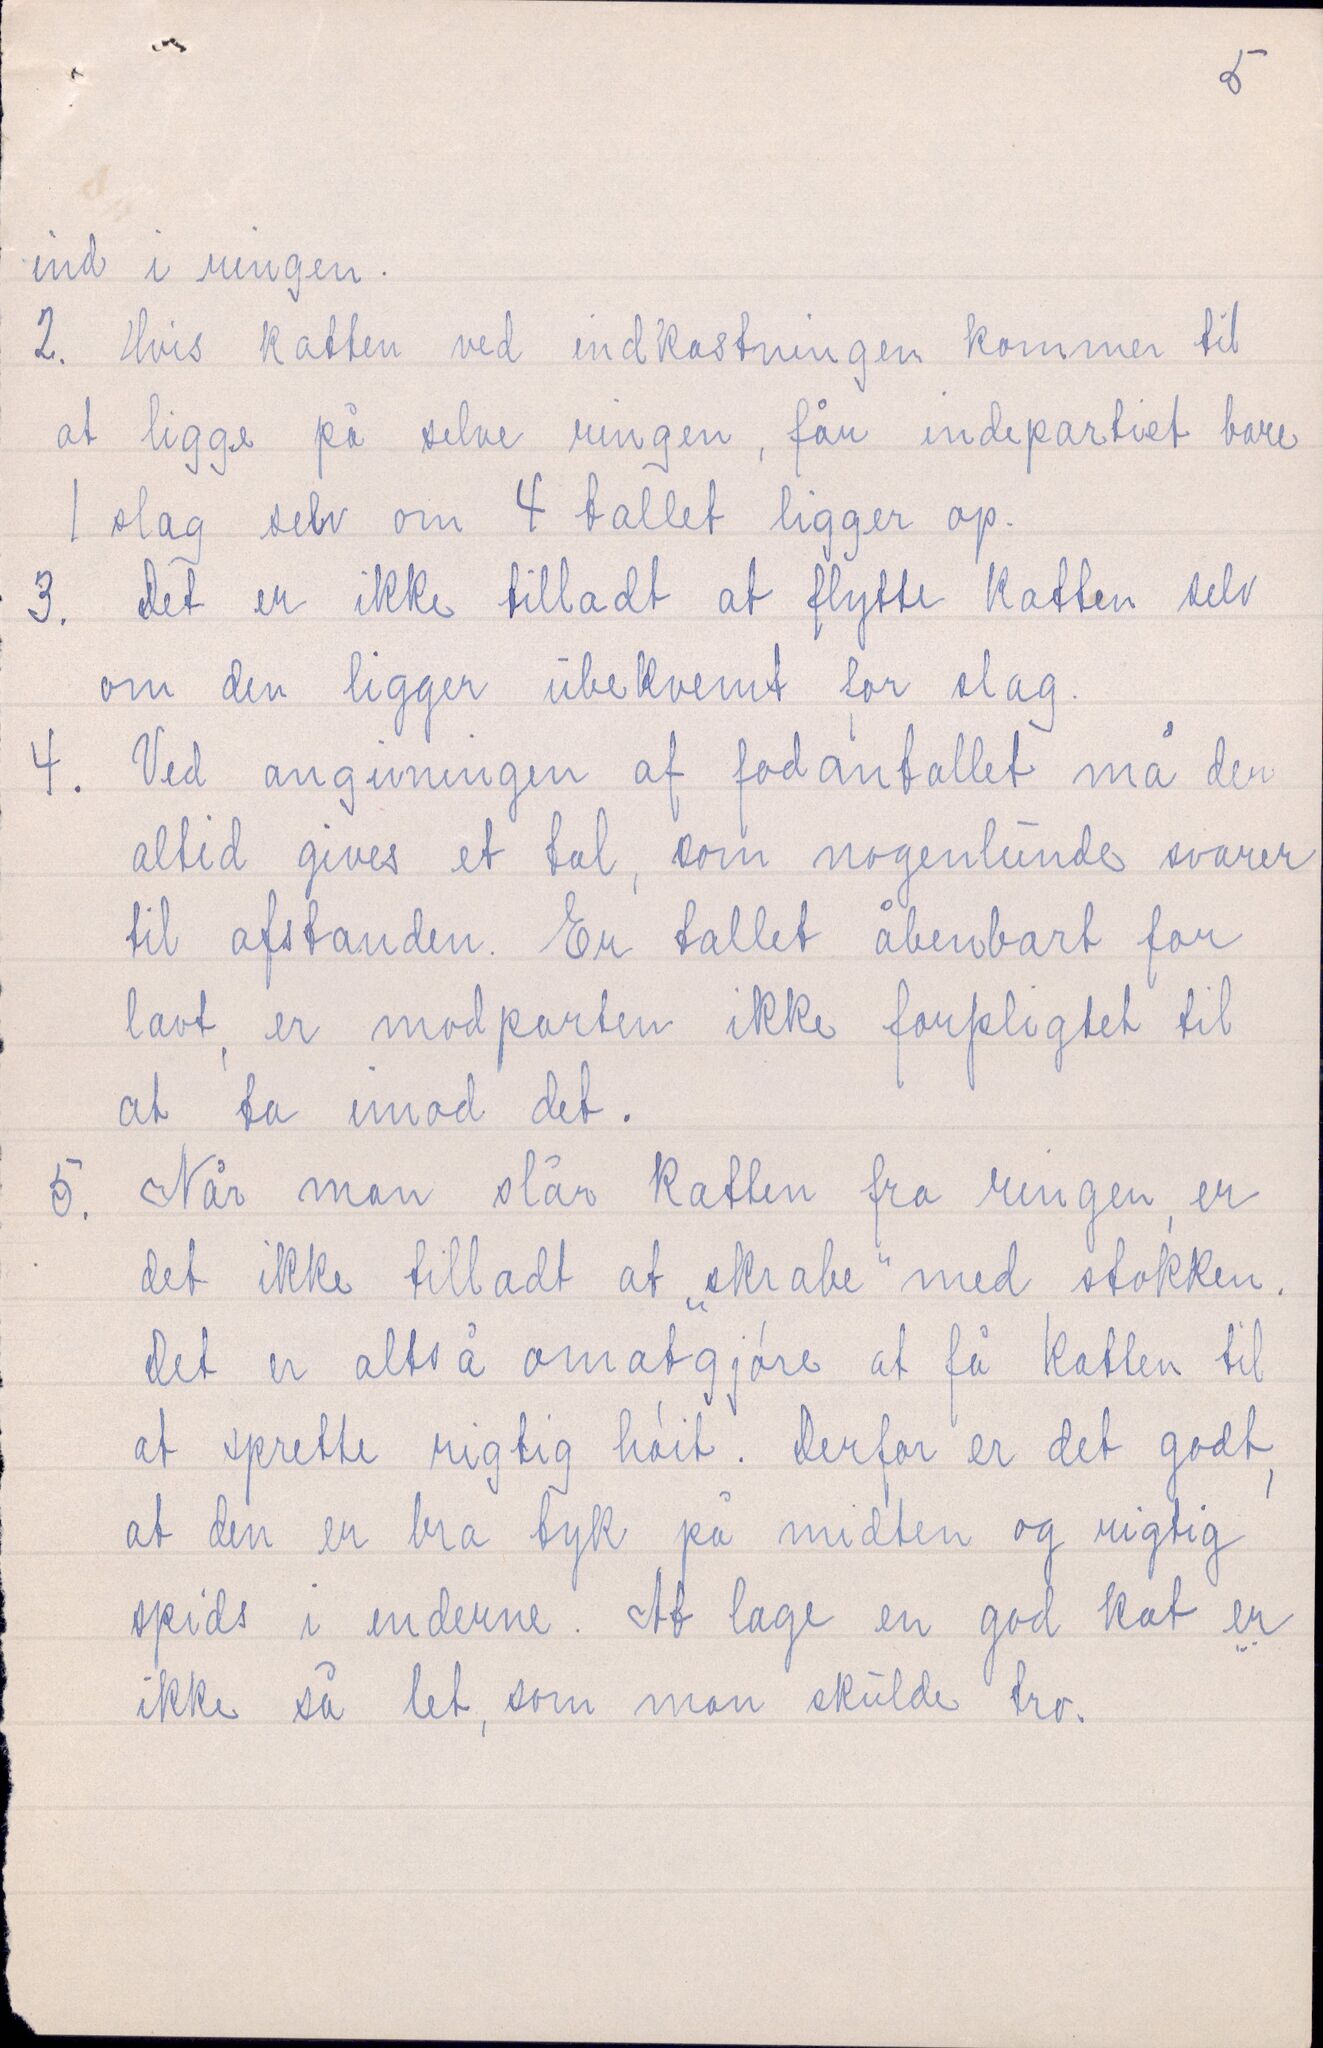 5
ind i ringen.
2. Hvis katten ved indkastningen kommer til
at ligge på selve ringen, får indepartiet bare
1 slag selv om 4 tallet ligger op.
3. Det er ikke tilladt at flytte katten selv
om den ligger ubekvemt for slag.
4. Ved angivningen af fodantallet må der
altid gives et tal, som nogenlunde svarer
til afstanden. Er tallet åbenbart for
lavt, er modparten ikke forpligtet til
at ta imod det.
5. Når man slår katten fra ringen, er
det ikke tilladt at „skrabe“ med stokken.
Det er altså omatgjøre at få katten til
at sprette rigtig høit. Derfor er det godt,
at den er bra tyk på midten og rigtig
spids i enderne. At lage en god kat er
ikke så let, som man skulde tro.